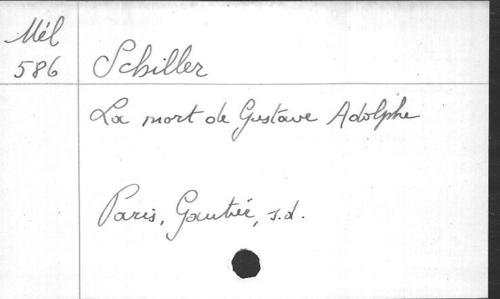 Mél
586
Schiller
La mort de Gustave Adolphe
Paris, Gautier, s.d.